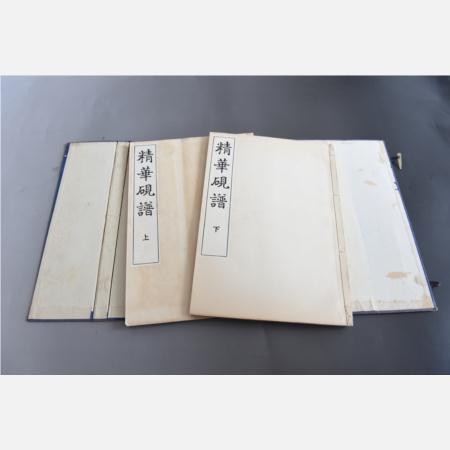 精華硯譜
上
精華硯譜
下